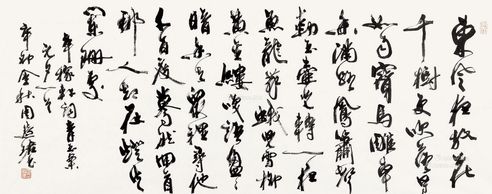 東風夜放花
千樹更吹落星
如雨寶馬雕車
香滿路鳳簫聲
動玉壺光轉一夜
魚龍舞蛾兒雪柳
黃金縷笑語盈盈
暗香去衆裡尋他
千百度驀然回首
那人却在燈火
闌珊處
辛稼軒詞青玉案
元夕一首
辛卯金秋周慧珺書